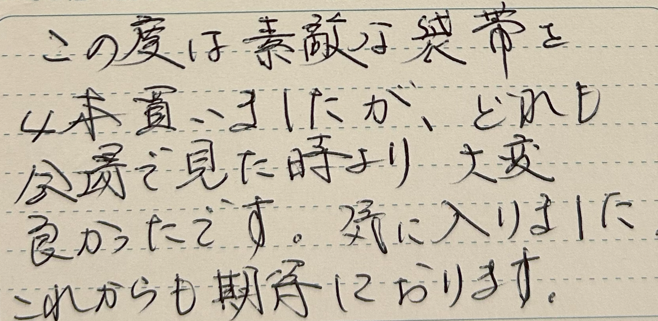 この度は素敵な袋帯を
4本買いましたが、どれも
会場で見た時より大変
良かったです。気に入りました。
これからも期待しております。